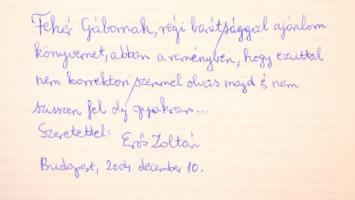 Fehér Gábornak, régi barátsággal ajánlom
könyvemet, abban a reményben, hogy ezuttal
nem korrektori szemmel olvas majd és nem
szisszen fel oly gyakran...
Szeretettel:
Erős Zoltán
Budapest, 2004 december 10.